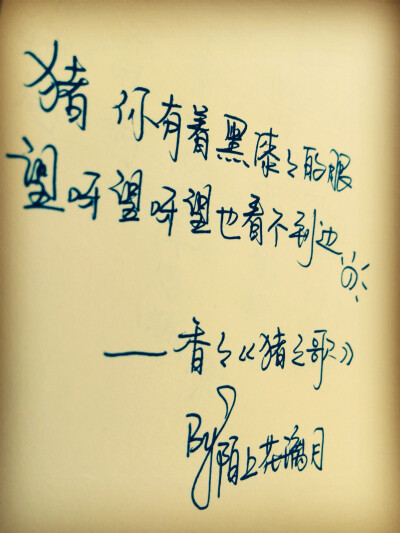 猪 你有着黑漆々的眼
望呀望呀望也看不到边
——香々《猪之歌》
By陌上花漓月